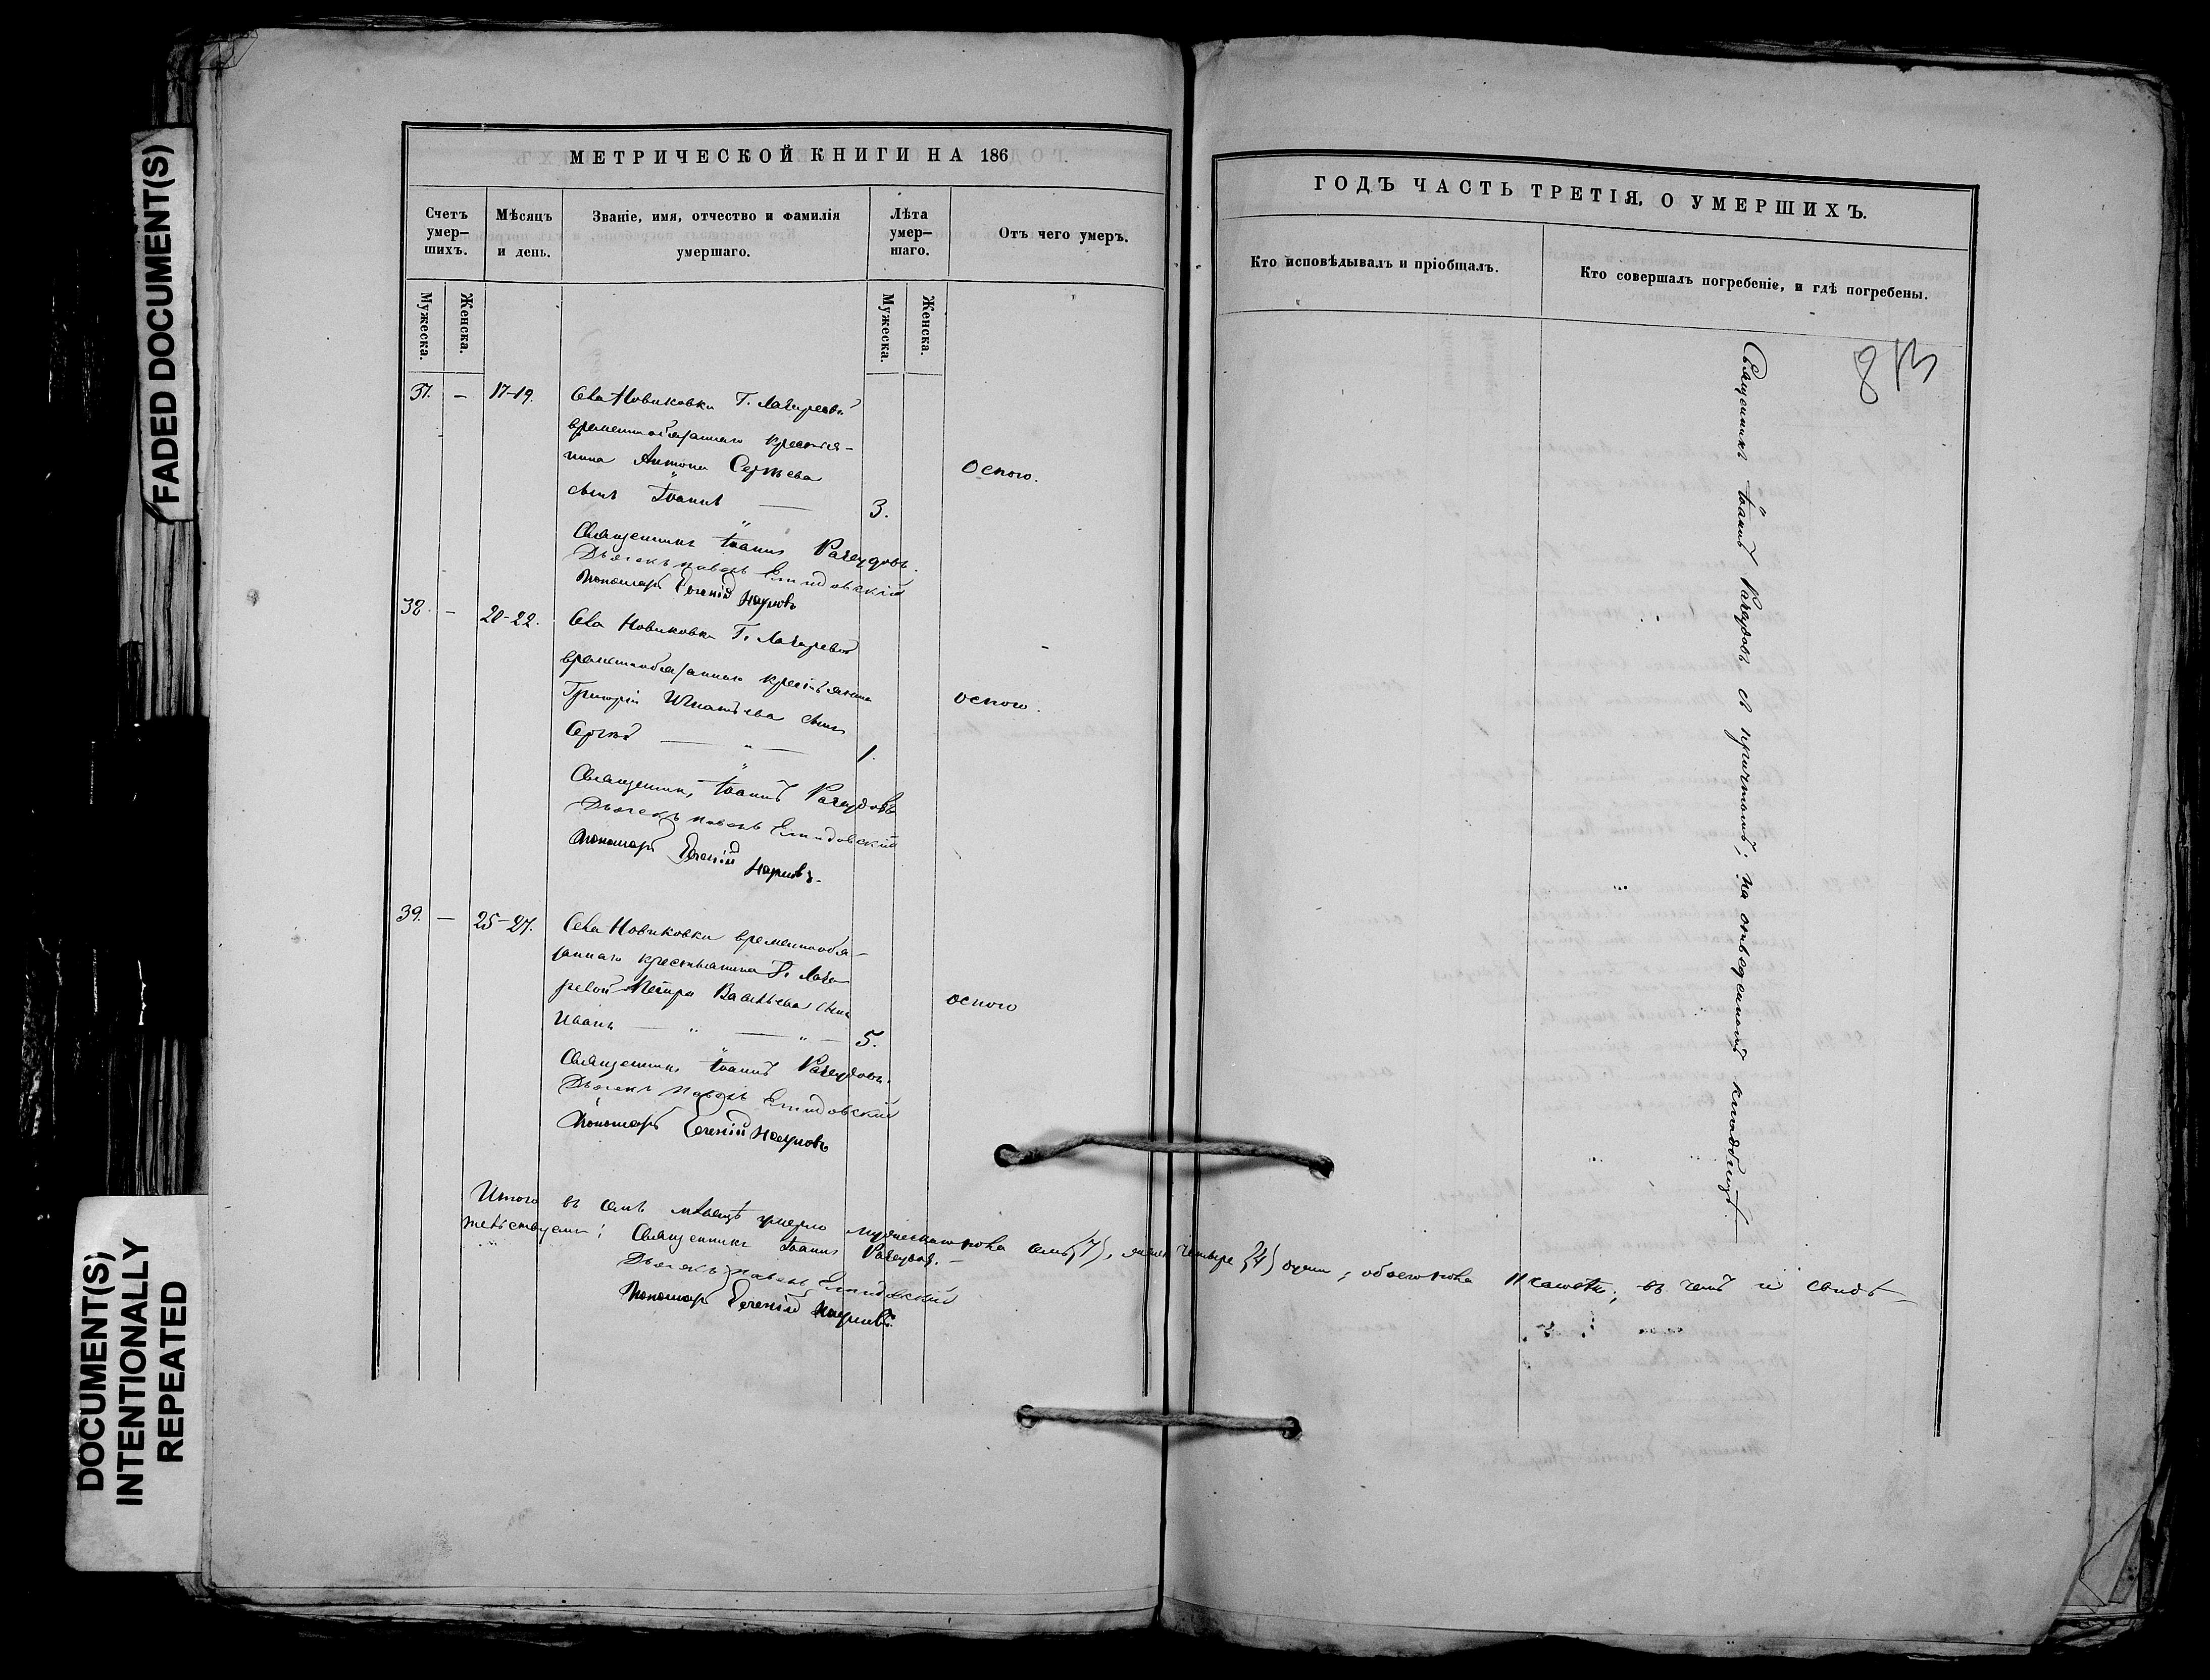 FADED DOCUMENT(S)
DOCUMENT(S)
INTENTIONALLY
REPEATED
МЕТРИЧЕСКОЙ КНИГИ НА 186
Счетъ умер–шихъ.
Мѣсяцъ и день.
Званіе, имя, отчество и фамилія умершаго.
Лѣта умер–шаго.
Отъ чего умеръ.
Мужеска.
Женска.
Мужеска.
Женска.
37. – 17–19. Села Новиковки Г.
временнообязаннаго крестья–
нина Антона Сергѣева
сынъ Іоаннъ — 3.
оспою.
Священникъ Іоаннъ
Дьячекъ Павелъ
Пономарь Евгеній Наумовъ
38. – 20–22. Села Новиковки Г.
временнообязаннаго крестьянина
Григорія Игнатьева сынъ
Сергѣй — " — 1.
оспою.
Священникъ Іоаннъ
Дьячекъ Павелъ
Пономарь Евгеній Наумовъ.
39. – 25–27. Села Новиковки временнообя–
заннаго крестьянина Г.
Петра Васильева сынъ
Иванъ — " — " — 5.
оспою
Священникъ Іоаннъ
Дьячекъ Павелъ
Пономарь Евгеній Наумовъ
Итого въ семъ мѣсяцѣ умерло мужескаго пола семь (7), четыре (4) души; обоего пола 11 въ чемъ и свидѣ–
тельствуемъ: Священникъ Іоаннъ
Дьячекъ Павелъ
Пономарь Евгеній Наумовъ.
ГОДЪ ЧАСТЬ ТРЕТІЯ, О УМЕРШИХЪ.
Кто исповѣдывалъ и пріобщалъ.
Кто совершалъ погребеніе, и гдѣ погребены.
Священникъ Іоаннъ съ причтомъ; на отведенномъ кладбищѣ.